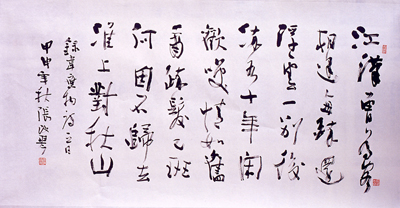 江漢曾为客
相逢每醉還
浮雲一别後
流水十年间
歡笑情如舊
萧疏髮已斑
何因不歸去
淮上對秋山
錄韋應物詩一首
甲申年秋張